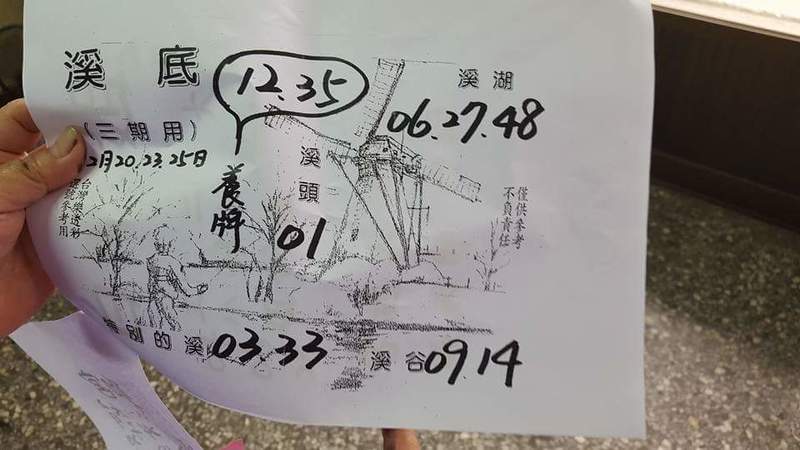 溪底
12.35
養牌
溪湖
06.27.48
(三期用)
2月20.23.25日
溪頭
01
台灣樂透彩
選號參考用
僅供參考
不負責任
別的溪
03.33
溪谷
09.14